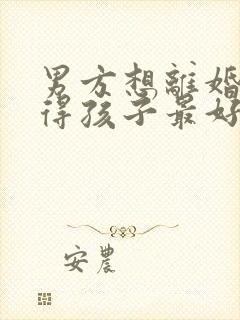 男方想離婚
得孩子最好
安農